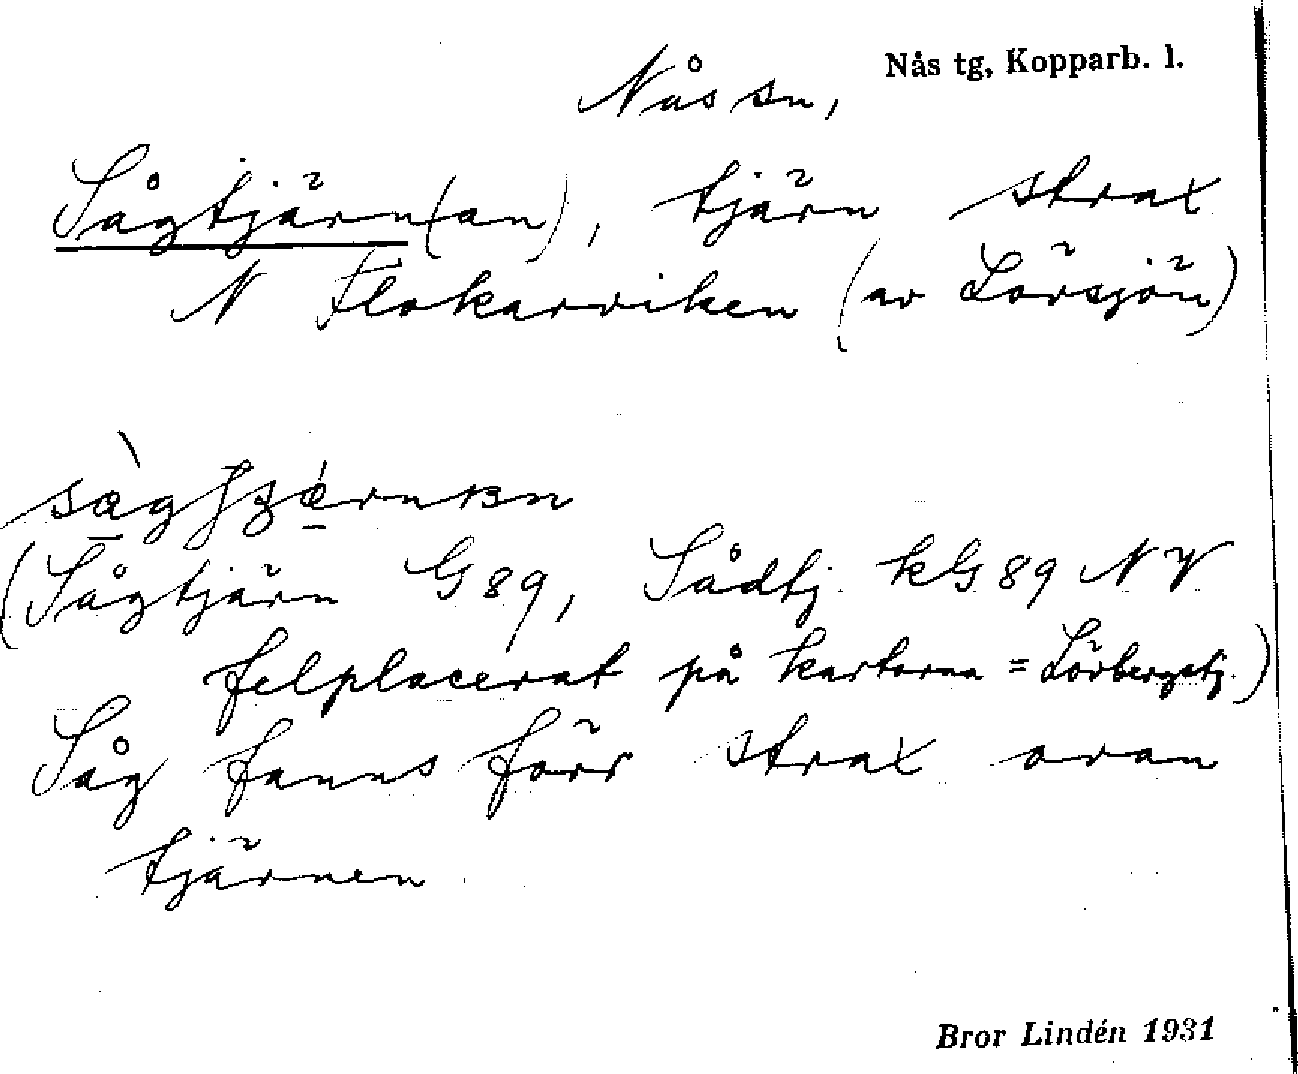 Nås tg, Kopparb. l.
Nås sn,
Sågtjärn(an), tjärn strax
N Flokarviken (av Lörsjön)
(Sågtjärn G89, Sådtj. kG89 NV
felplacerat på kartorna = Lörbergstj.)
Såg fanns förr strax ovan
tjärnen
Bror Lindén 1931